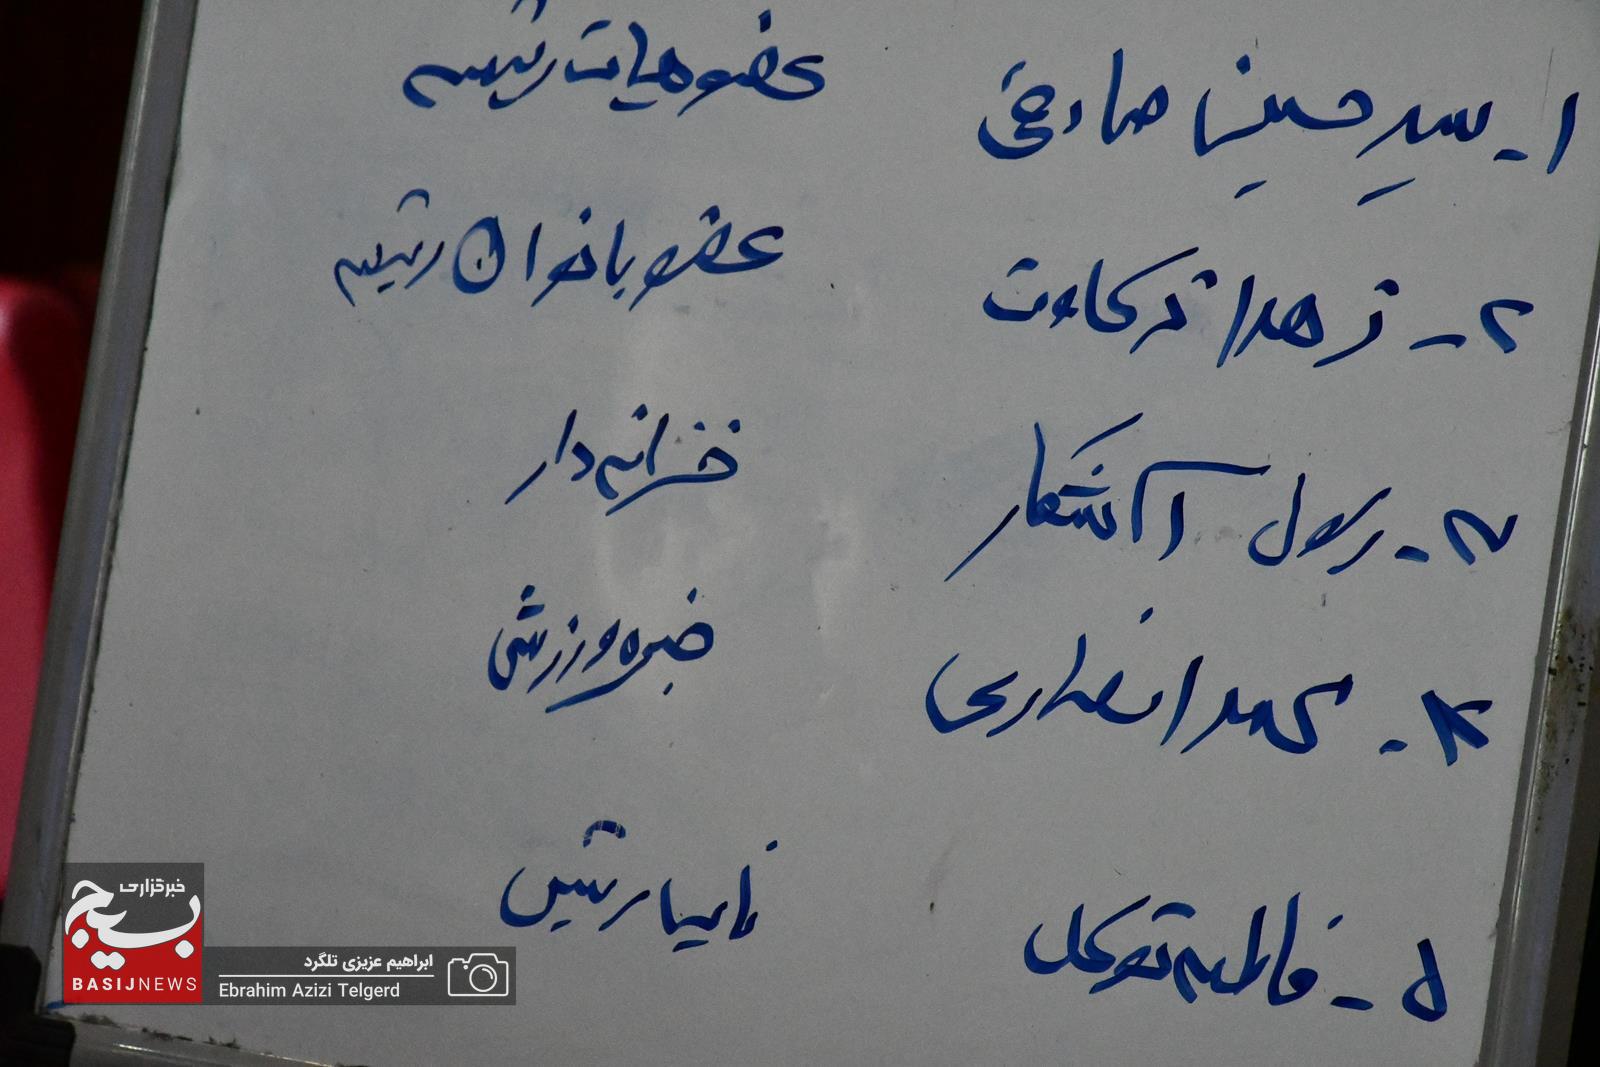 ۱- سید حسین صادقی عضو هیات رئیسه
۲- زهرا ترکاوت عضو بانوان رئیسه
۳- رسول آشکار خزانه دار
۴- محمد انصاری خبره ورزشی
۵- فاطمه توکل نایب رئیس
خبرگزاری
بسیج
BASIJNEWS
ابراهیم عزیزی تلگرد
Ebrahim Azizi Telgerd